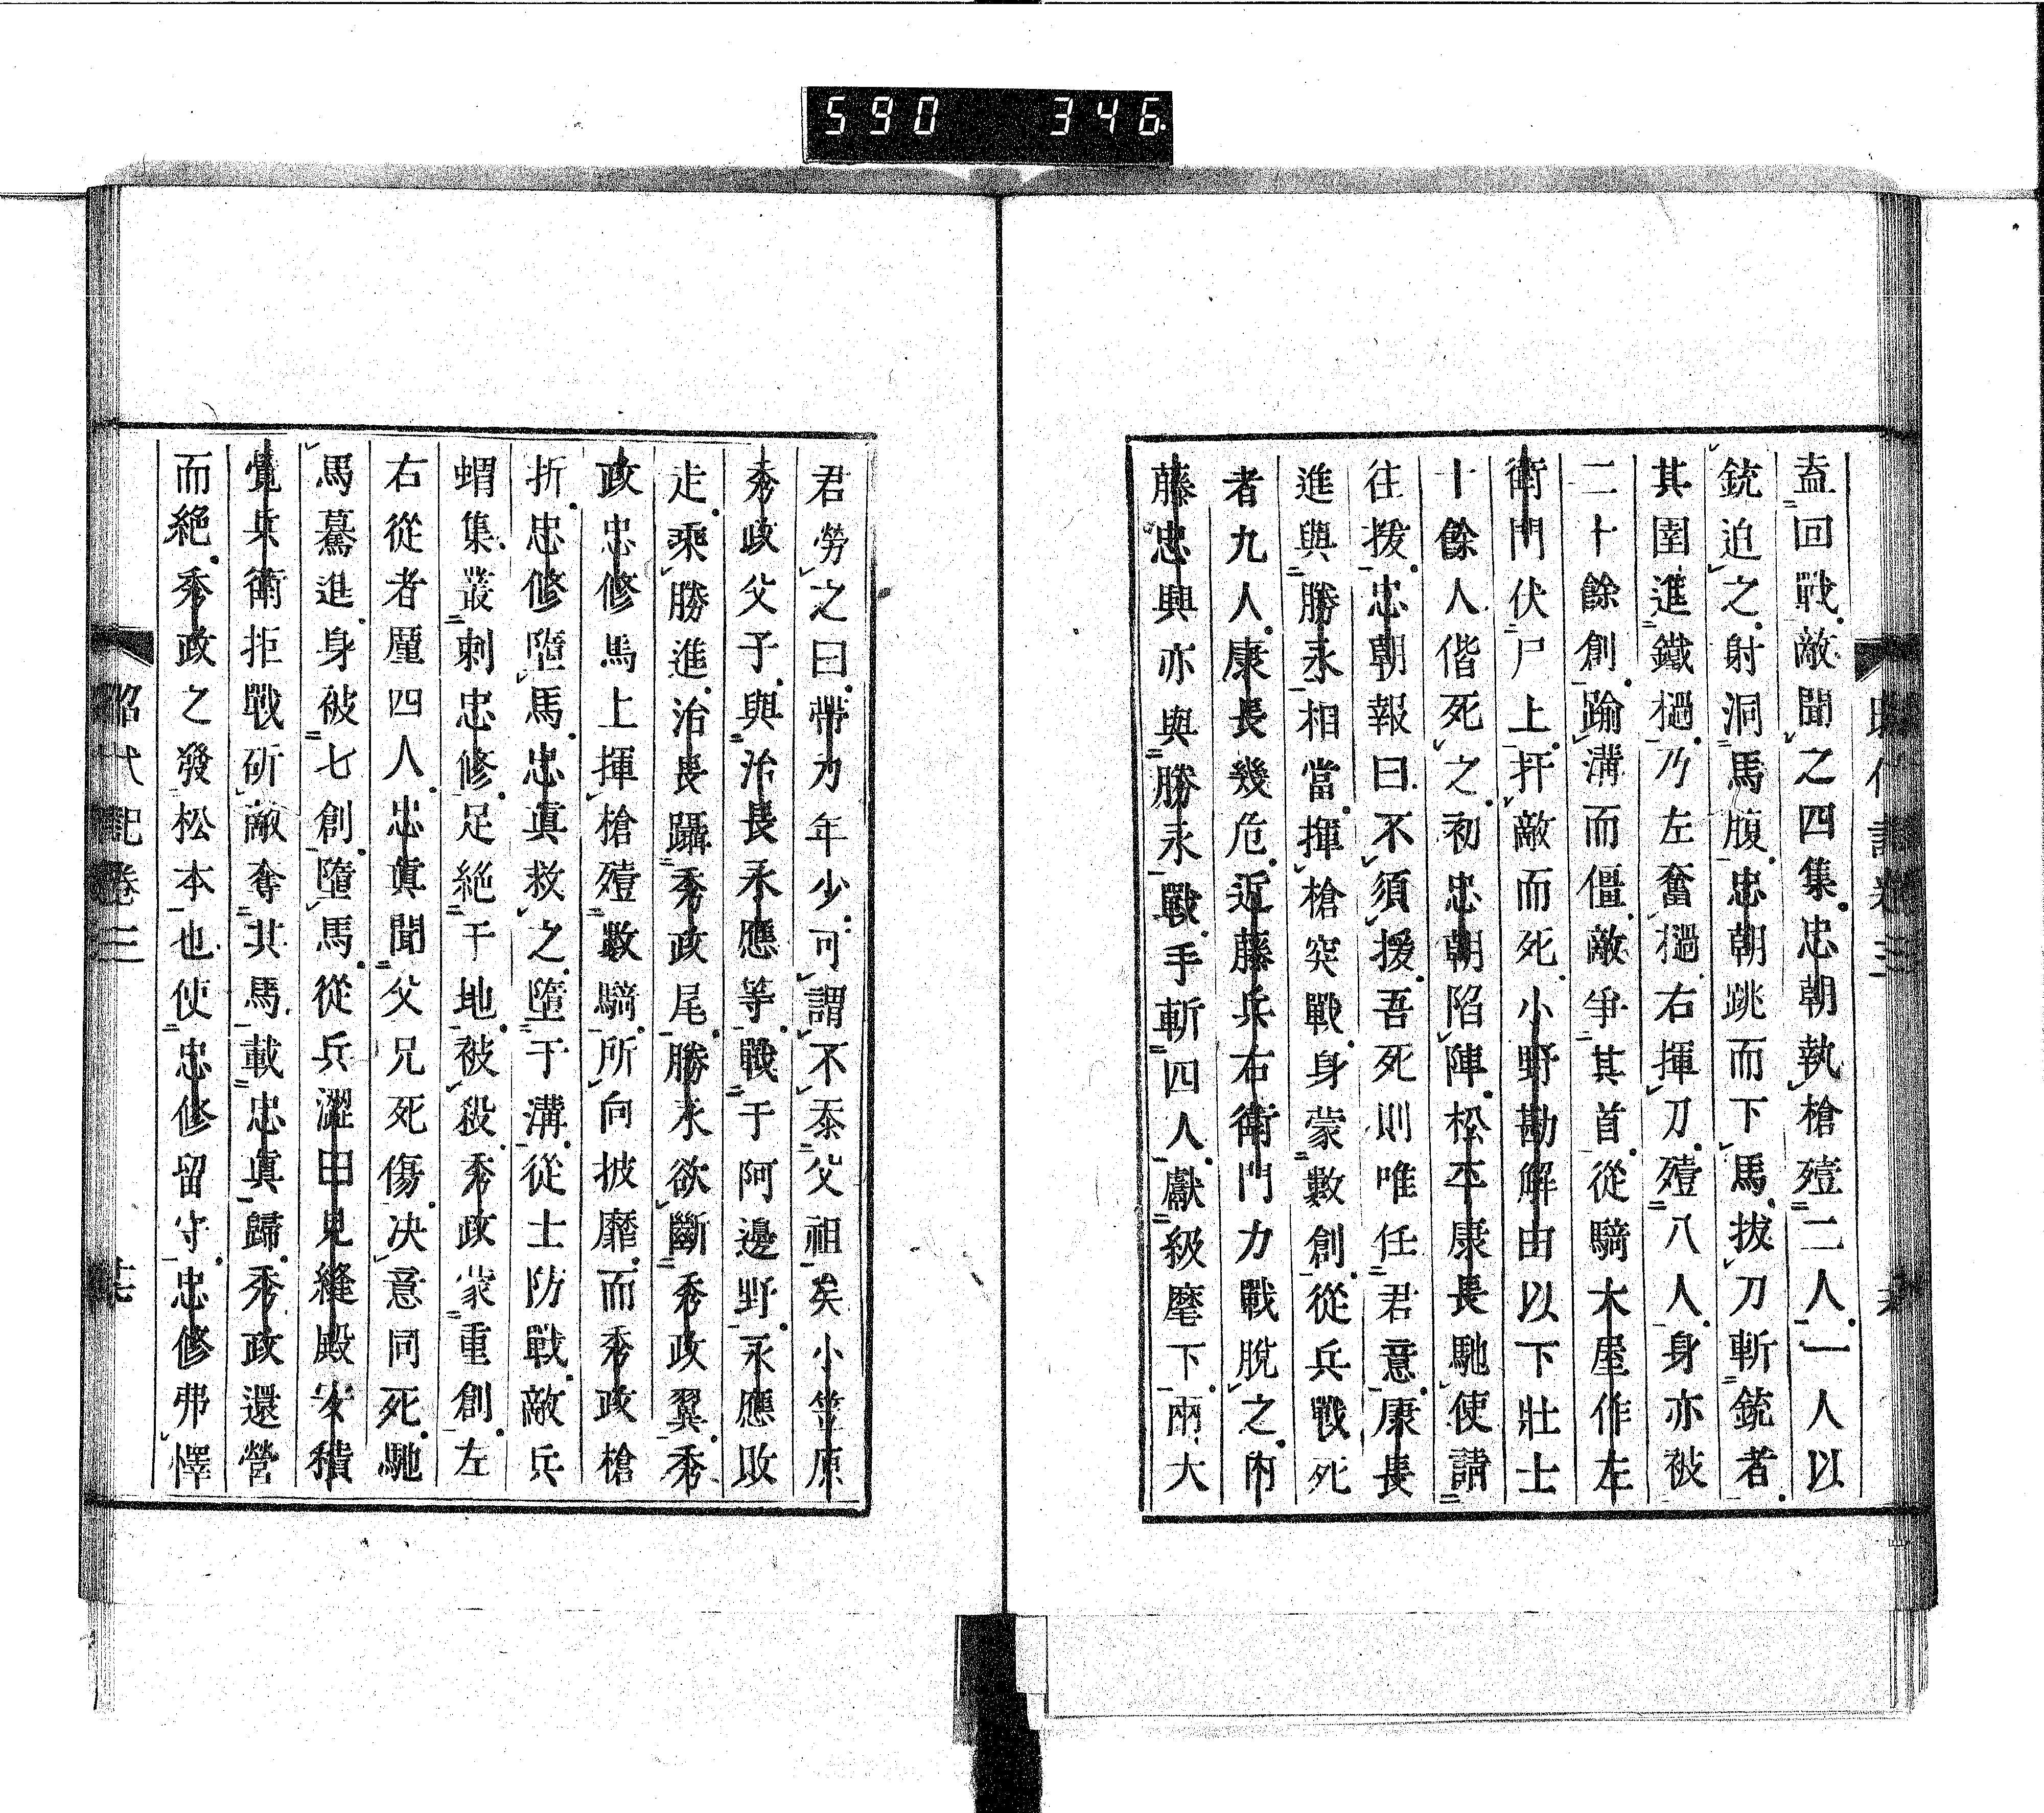 590 346
盍回戰敵聞之四集忠朝執槍殪二人一人以
銃迫之射洞馬腹忠朝跳而下馬拔刀斬銃者
其圍進鐵檛乃左奮檛右揮刀殪八人身亦被
二十餘創踰溝而僵敵爭其首從騎大屋作左
衛門伏尸上扞敵而死小野勘解由以下壯士
十餘人偕死之初忠朝陷陣松平康長馳使請
往援忠朝報曰不須援吾死則唯任君意康長
進與勝永相當揮槍突戰身蒙數創從兵戰死
者九人康長幾危近藤兵右衛門力戰脫之內
藤忠興亦與勝永戰手斬四人獻級麾下兩大
君勞之曰帶刀年少可謂不忝父祖矣小笠原
秀政父子與治長永應等戰于阿邊野永應敗
走乘勝進治長躡秀政尾勝永欲斷秀政翼秀
政忠修馬上揮槍殪數騎所向披靡而秀政槍
折忠修墮馬忠眞救之墮于溝從士防戰敵兵
蝟集叢刺忠修足絕于地被殺秀政蒙重創左
右從者厪四人忠眞聞父兄死傷决意同死馳
馬驀進身被七創墮馬從兵澀田見縫殿安積
覺兵衛拒戰斫敵奪其馬載忠眞歸秀政還營
而絕秀政之發松本也使忠修留守忠修弗懌
昭代記卷三